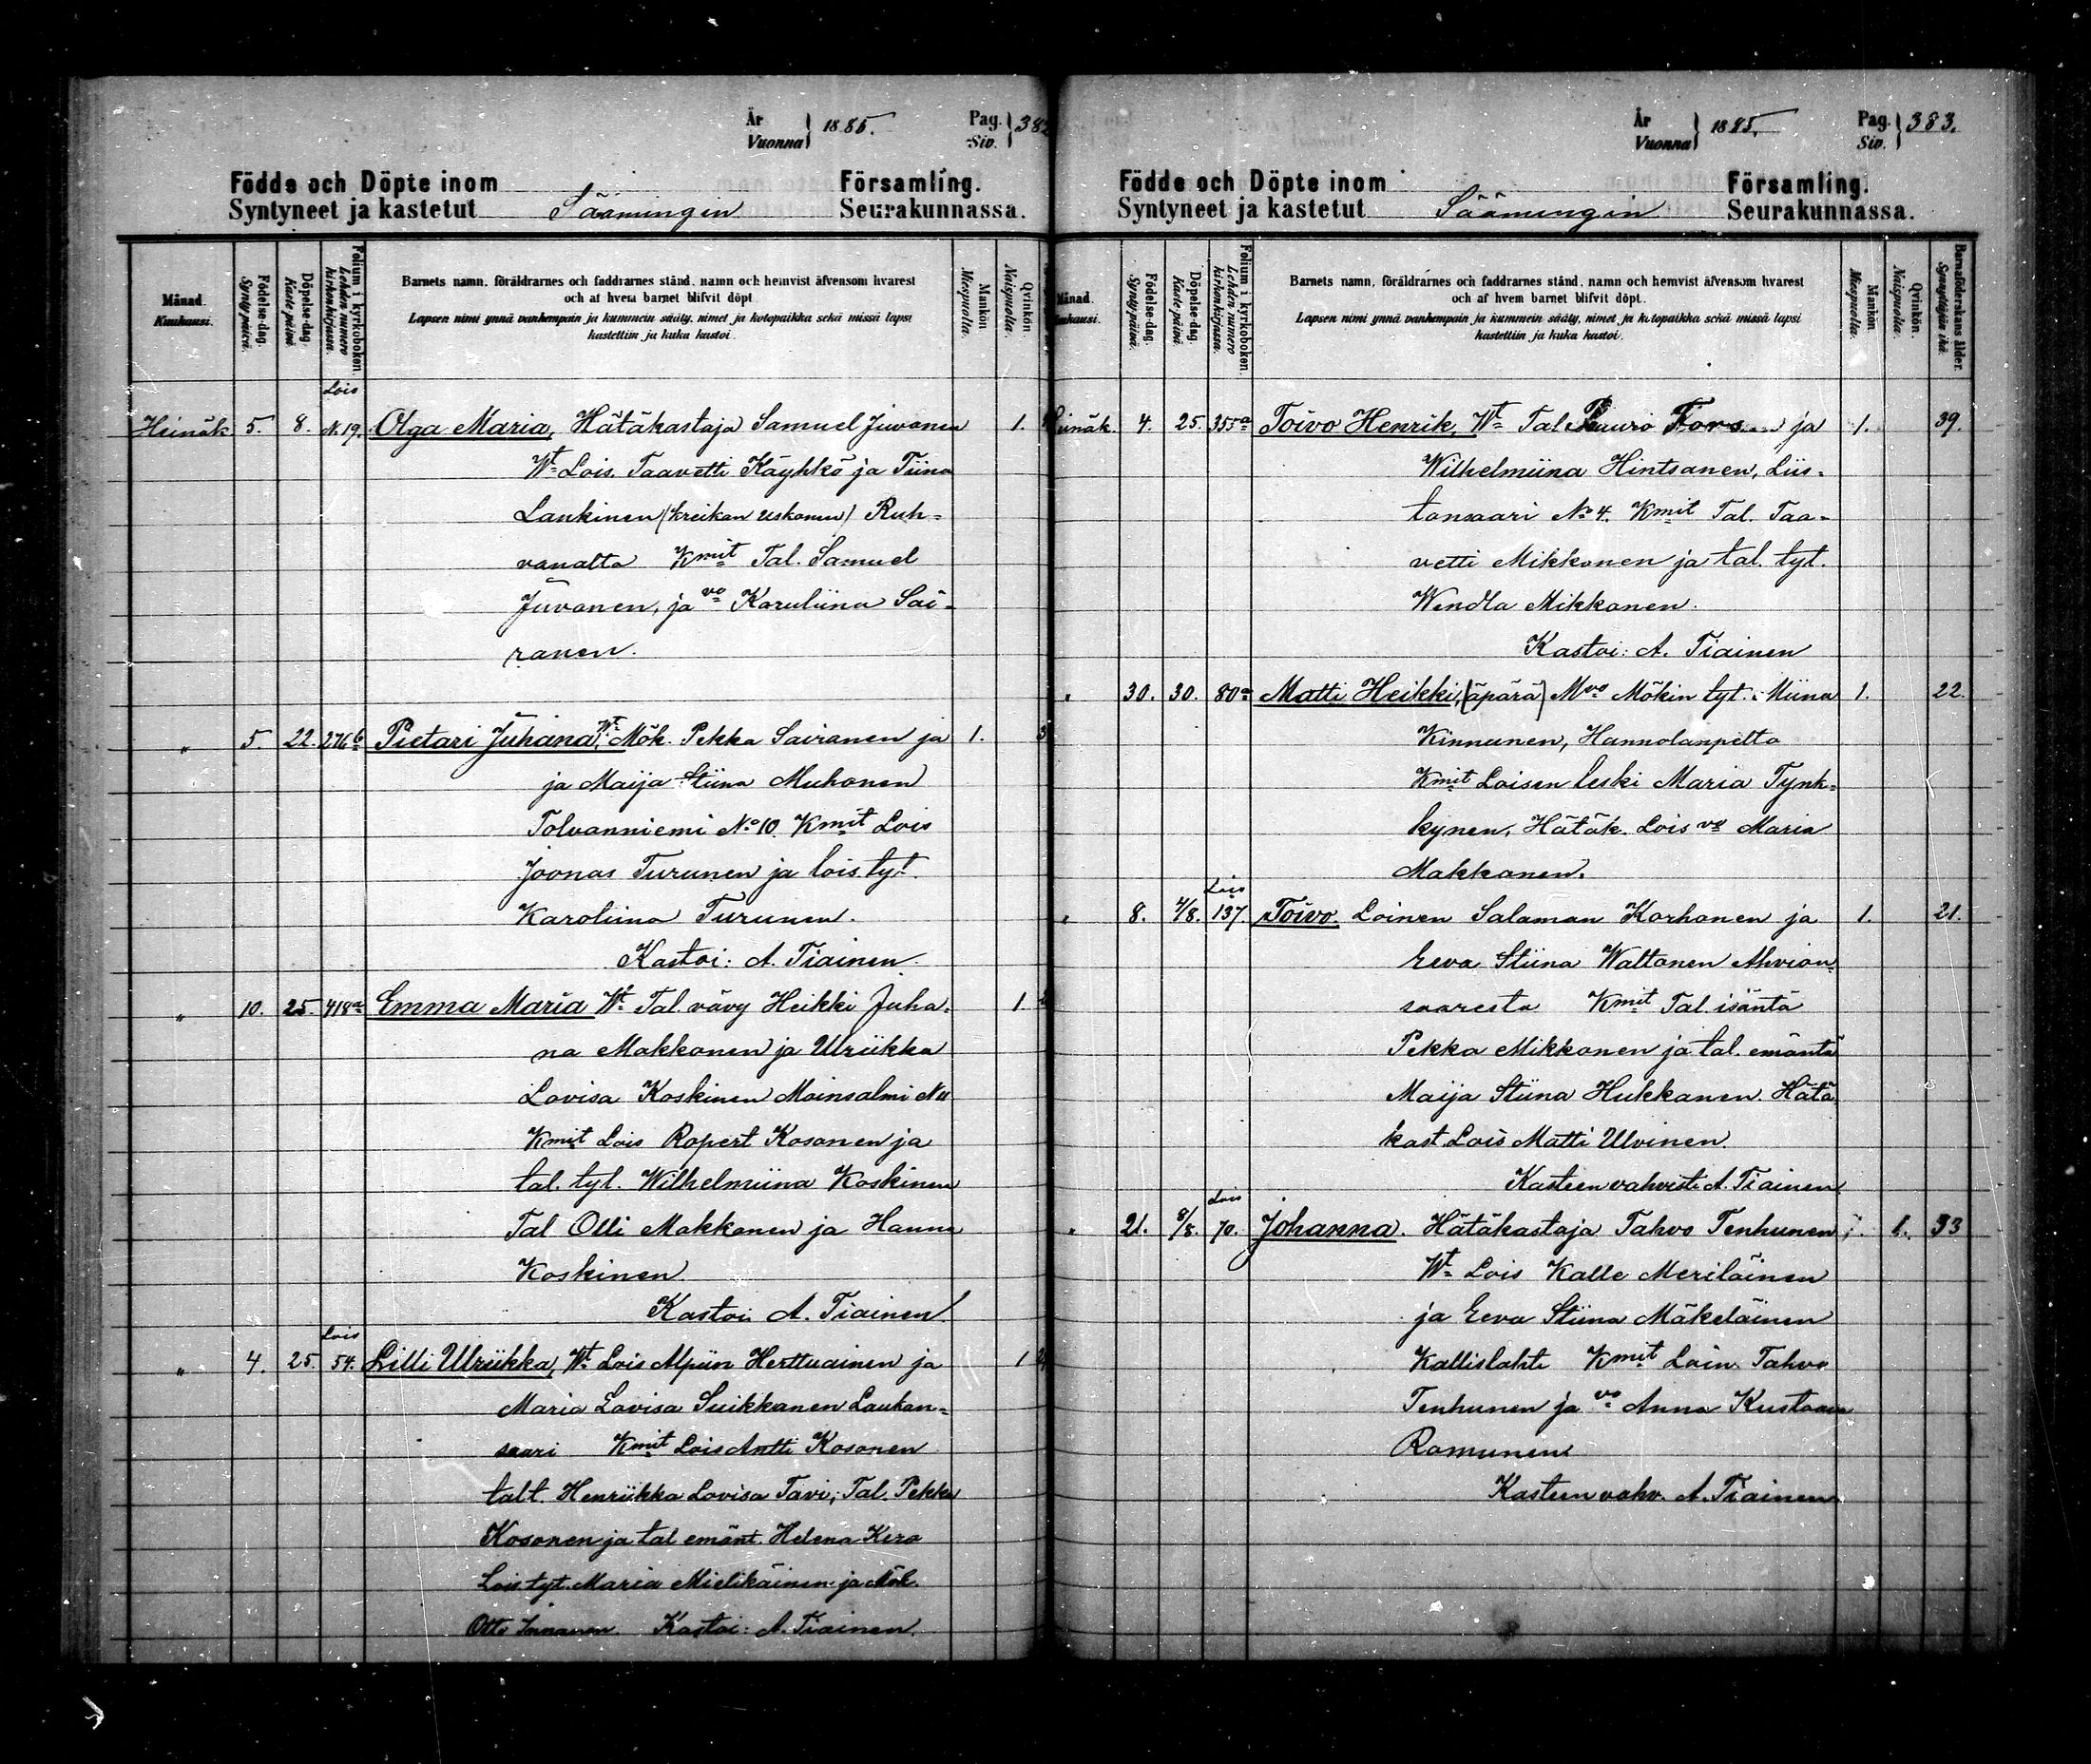 År
Vuonna } 1885.
Pag.
Siv. } 382
Födde och Döpte inom Församling.
Syntyneet ja kastetut Säämingin Seurakunnassa.
Månad. Kuukausi.
Födelse-dag. Syntypäivä.
Döpelse-dag. Kastepäivä.
Folium i kyrkoboken. Lehden numero kirkonkirjassa.
Barnets namn, föräldrarnes och faddrarnes stånd, namn och hemvist äfvensom hvarest
och af hvem barnet blifvit döpt.
Lapsen nimi ynnä vanhempain ja kummein sääty, nimet ja kotopaikka sekä missä lapsi
kastettiin ja kuka kastoi.
Mankön. Miespuolia.
Qvinkön. Naispuolia.
Lois
Heinäk 5. 8. N. 19. Olga Maria, Hätäkastaja Samuel Juvonen 1.
Wt Lois. Taavetti Käyhkö ja Tiina
Lankinen (kreikan uskonen) Ruh-
vanalta Kmit Tal. Samuel
Juvonen, ja vo Karuliina Sai-
ranen.
" 5. 22. 276b Pietari Juhana, Wt Mök. Pekka Sairanen ja 1.
ja Maija Stiina Muhonen
Tolvanniemi No 10. Kmit Lois
Joonas Turunen ja lois. tyt.
Karoliina Turunen.
Kastoi: A. Tiainen.
" 10. 25. 418a Emma Maria Wt Tal. vävy Heikki Juha- 1.
na Makkonen ja Ulriikka
Lovisa Koskinen Moinsalmi
Kmit Lois Ropert Kosonen ja
tal. tyt. Wilhelmiina Koskinen
Tal Olli Makkonen ja Hanna
Koskinen
Kastoi A. Tiainen
Lois
" 4. 25. 54. Lilli Ulriikka, Wt Lois Alpiin Herttuainen ja 1
Maria Lovisa Suikkanen Laukan-
saari Kmit Lois Antti Kosonen
talt. Henriikka Lovisa Tavi, Tal. Pekka
Kosonen ja tal emänt. Helena Kero
Lois. tyt. Maria Mielikäinen ja Mök.
Otto Innanen. Kastoi: A. Tiainen.
År
Vuonna } 1885.
Pag.
Siv. } 383.
Födde och Döpte inom Församling.
Syntyneet ja kastetut Säämingin Seurakunnassa.
Månad.
Födelse-dag. Syntypäivä.
Döpelse-dag. Kastepäivä.
Folium i kyrkoboken. Lehden numero kirkonkirjassa.
Barnets namn, föräldrarnes och faddrarnes stånd, namn och hemvist äfvensom hvarest
och af hvem barnet blifvit döpt.
Lapsen nimi ynnä vanhempain ja kummein sääty, nimet ja kotopaikka sekä missä lapsi
kastettiin ja kuka kastoi.
Mankön. Miespuolia.
Qvinkön. Naispuolia.
Barnaföderskans ålder. Synnyttäjän ikä.
Heinäk. 4. 25. 355a Toivo Henrik, Wt Tal. Fors ja 1. 39.
Wilhelmiina Hintsanen, Liis-
tonsaari No 4. Kmit Tal. Taa-
vetti Mikkonen ja tal. tyt.
Wendla Mikkonen.
Kastoi: A. Tiainen
" 30. 30. 80a Matti Heikki, (äpärä) Mvo Mökin tyt. Miina 1. 22.
Kinnunen, Hannolanpelto
Kmit Loisen leski Maria Tynk-
kynen, Hätäk. Lois vo Maria
Makkonen.
Lois
" 8. 2/8. 137. Toivo. Loinen Salaman Korhonen ja 1. 21.
Eeva Stiina Wattonen Ahvion-
saaresta Kmit Tal. isäntä
Pekka Mikkonen ja tal. emäntä
Maija Stiina Hukkanen. Hätä
kast. Lois Matti Ulvinen.
Kasteen vahvisti A. Tiainen
Lois
" 21. 8/8. 70. Johanna. Hätäkastaja Tahvo Tenhunen 1. 33
Wt Lois Kalle Meriläinen
ja Eeva Stiina Mäkeläinen
Kallislahti Kmit Loin. Tahvo
Tenhunen ja vo Anna Kustaava
Romunen
Kasteen vahv. A. Tiainen